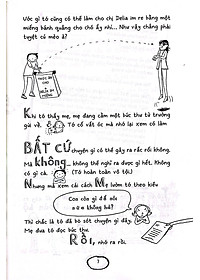 Ước gì tớ cũng có thể làm cho chị Delia im re bằng một
miếng bánh quăng cho chó ấy nhỉ... Như vậy chẳng phải
tuyệt cú mèo à?
Khi tớ thấy mẹ, mẹ đang cầm một bức thư từ trường
gửi về. Tớ cố vắt óc mà nhớ lại xem có làm
BẤT CỨ chuyện gì có thể gây ra rắc rối không.
Mà không... không thể nghĩ ra được gì hết. Không
có gì cả. (Tớ hoàn toàn vô tội)
Nhưng mà xem cái cách Mẹ lườm tớ theo kiểu
Con còn gì để nói
nữa không hả?
Thì chắc là tớ đã bỏ sót chuyện gì đây.
Mẹ đưa tớ đọc bức thư.
RỒI, nhớ ra rồi.